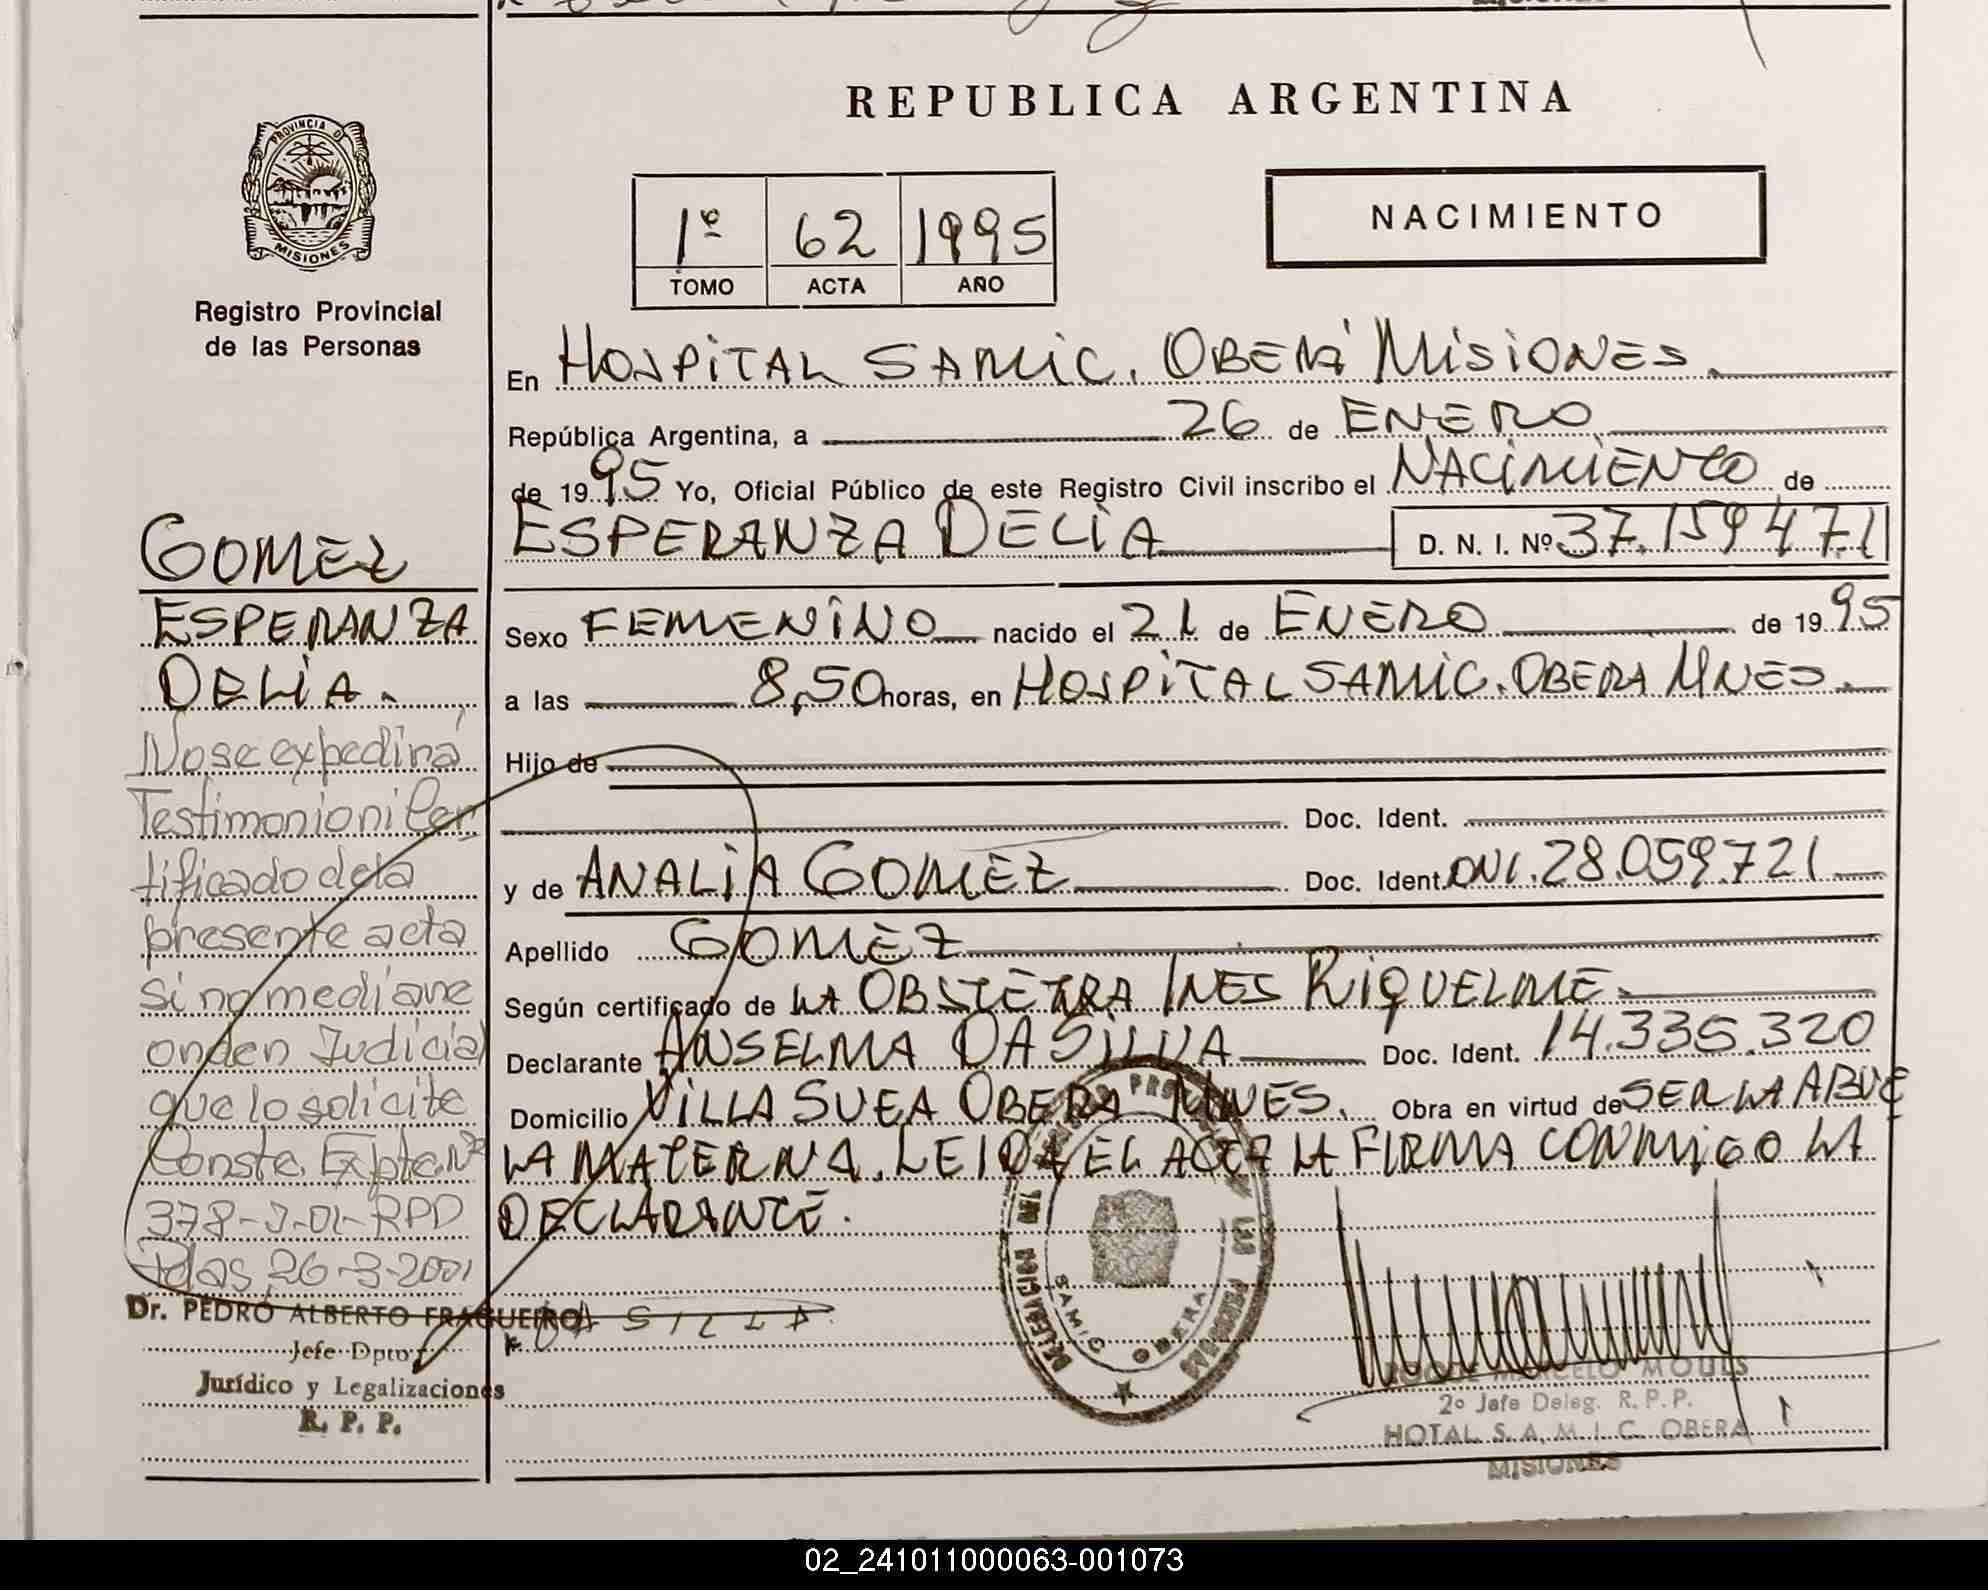 REPUBLICA ARGENTINA
PROVINCIA D
MISIONES
Registro Provincial
de las Personas
1º 62 1995
TOMO ACTA AÑO
NACIMIENTO
En HOSPITAL SAMIC. OBERÁ MISIONES.
República Argentina, a 26 de ENERO
de 1995 Yo, Oficial Público de este Registro Civil inscribo el NACIMIENTO de
ESPERANZA DELIA D. N. I. Nº 37.159471
Sexo FEMENINO nacido el 21 de ENERO de 1995
a las 8,50 horas, en HOSPITAL SAMIC. OBERA MNES.
Hijo de
Doc. Ident.
y de ANALIA GOMEZ Doc. Ident. DNI. 28.059.721
Apellido GOMEZ
Según certificado de LA OBSTETRA INES RIQUELME.
Declarante ANSELMA DA SILVA Doc. Ident. 14.335.320
Domicilio VILLA SUEA OBERA MNES. Obra en virtud de SER LA ABUE
LA MATERNA. LEIDA EL ACTA LA FIRMA CONMIGO LA
DECLARANTE.
GOMEZ
ESPERANZA
DELIA.
No se expedirá
Testimonio ni Cer
tificado de la
presente acta
si no mediane
orden Judicial
que lo solicite
Conste. Expte. Nº
378-J-01-RPD
Pdas 26-3-2001
Dr. PEDRO ALBERTO FRAGUEIRO
Jefe Dpto.
Jurídico y Legalizaciones
R. P. P.
LAS PERSONAS
DELEGACION
SAMIC OBERA
MARCELO MOULS
2º Jefe Deleg. R. P. P.
HOTAL S. A. M. I. C. OBERA
MISIONES
02_241011000063-001073